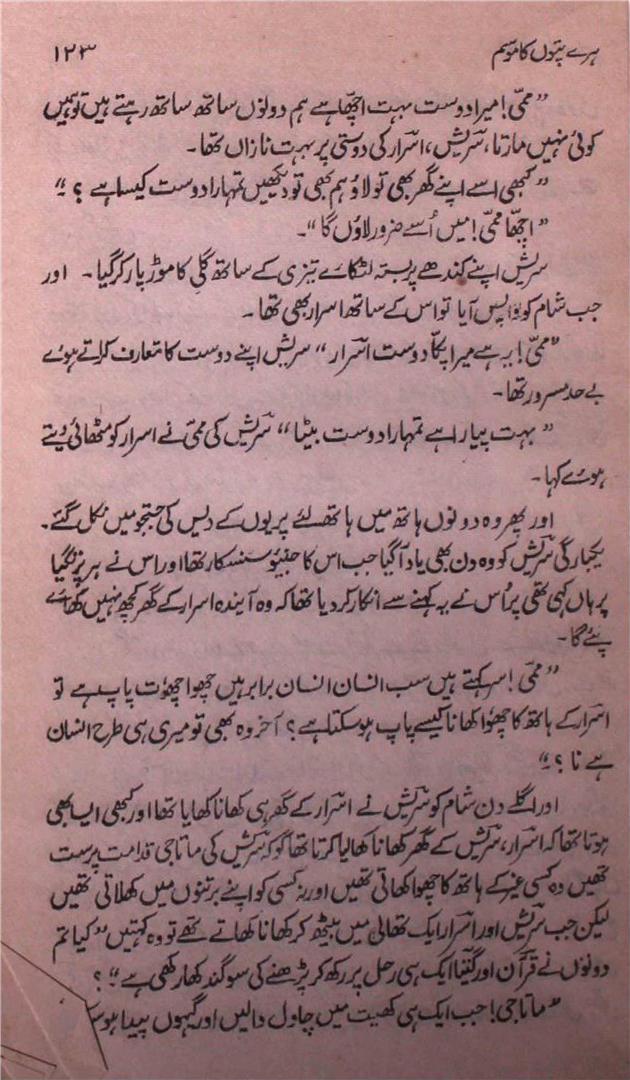 ہرے پتوں کا موسم ۱۲۳
”ممّی! میرا دوست بہت اچھا ہے ہم دونوں ساتھ ساتھ رہتے ہیں تو ہمیں
کوئی نہیں مارتا، سرّیش، اسرار کی دوستی پر بہت نازاں تھا۔
”کبھی اسے اپنے گھر بھی تو لاؤ ہم بھی تو دیکھیں تمہارا دوست کیسا ہے؟“
”اچھا ممّی! میں اُسے ضرور لاؤں گا“۔
سرّیش اپنے کندھے پر بستہ لٹکائے تیزی کے ساتھ گلی کا موڑ پار کر گیا۔ اور
جب شام کو واپس آیا تو اس کے ساتھ اسرار بھی تھا۔
”ممّی! یہ ہے میرا پکّا دوست اسرار“ سریش اپنے دوست کا تعارف کراتے ہوئے
بے حد مسرور تھا۔
”بہت پیارا ہے تمہارا دوست بیٹا“ سرّیش کی ممّی نے اسرار کو مٹھائی دیتے
ہوئے کہا۔
اور پھر وہ دونوں ہاتھ میں ہاتھ لئے پریوں کے دیس کی جستجو میں نکل گئے۔
یکبارگی سرّیش کو وہ دن بھی یاد آگیا جب اس کا جنیو سنسکار تھا اور اس نے ہر
پر ہاں کہی تھی پر اُس نے یہ کہنے سے انکار کر دیا تھا کہ وہ آیندہ اسرار کے گھر کچھ نہیں کھائے
پئے گا۔
”ممّی! سر کہتے ہیں سب انسان انسان برابر ہیں چھوا چھوت پاپ ہے تو
اسرار کے ہاتھ کا چھوا کھانا کیسے پاپ ہو سکتا ہے؟ آخر وہ بھی تو میری ہی طرح انسان
ہے نا؟“
اور اگلے دن شام کو سرّیش نے اسرار کے گھر ہی کھانا کھایا تھا اور کبھی ایسا بھی
ہوتا تھا کہ اسرار، سرّیش کے گھر کھانا کھا لیا کرتا تھا گو کہ سرّیش کی ماتا جی قدامت پرست
تھیں وہ کسی غیر کے ہاتھ کا چھوا کھاتی تھیں اور نہ کسی کو اپنے برتنوں میں کھلاتی تھیں
لیکن جب سرّیش اور اسرار ایک تھالی میں بیٹھ کر کھانا کھاتے تھے تو وہ کہتیں ”کیا تم
دونوں نے قرآن اور گیتا ایک ہی رحل پر رکھ کر پڑھنے کی سوگند کھا رکھی ہے“؟
”ماتا جی! جب ایک ہی کھیت میں چاول دالیں اور گیہوں پیدا ہو